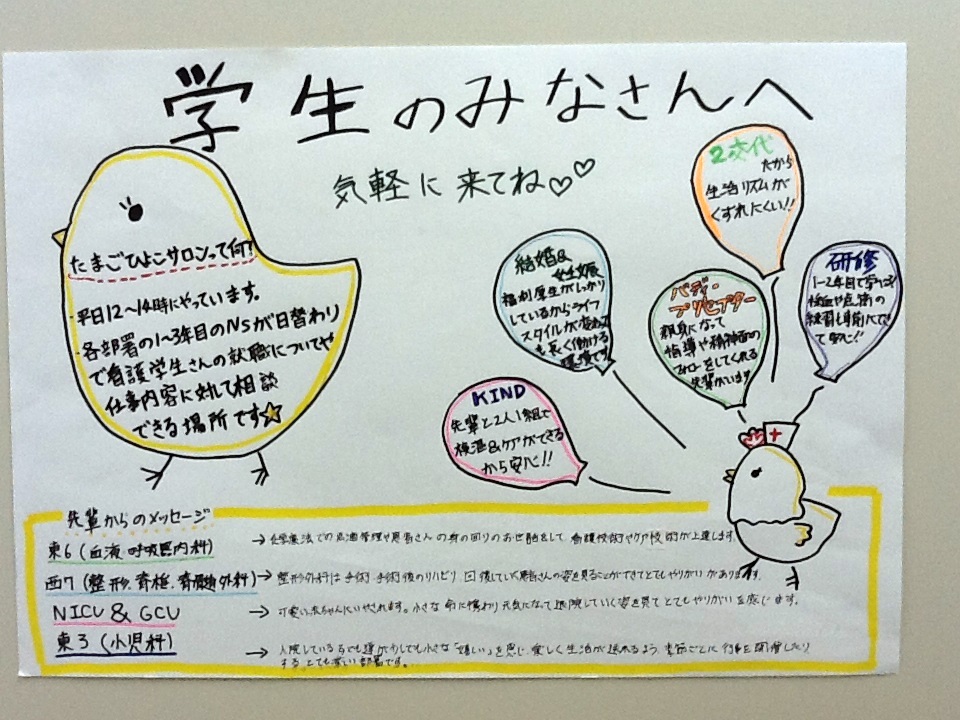 学生のみなさんへ
気軽に来てね♡♡
たまごひよこサロンって何?
・平日12〜14時にやっています。
・各部署の1〜3年目のNsが日替わり
で看護学生さんの就職についてや
仕事内容に対して相談
できる場所です☆
2交代
だから
生活リズムが
くずれにくい!!
結婚&
妊娠
福利厚生がしっかり
しているからライフ
スタイルが変わって
も長く働ける
環境です
バディ・
プリセプター
親身になって
指導や精神面の
フォローをしてくれる
先輩がいます
研修
1〜2年目で学べる
採血や点滴の
練習も事前にでき
て安心!!
KIND
先輩と2人1組で
検温&ケアができる
から安心!!
先輩からのメッセージ
東6(血液・呼吸器内科)
→化学療法での点滴管理や患者さんの身の回りのお世話をして、看護技術やケア技術が上達します。
西7(整形、脊椎、脊髄外科)
→整形外科は手術・手術後のリハビリ、回復していく患者さんの姿を見ることができてとてもやりがいがあります。
NICU & GCU
→可愛い赤ちゃんにいやされます。小さな命に携わり元気になって退院していく姿を見てとてもやりがいを感じます。
東3(小児科)
→入院している子でも少しでも小さな「嬉しい」を感じ、楽しく生活が送れるよう、季節ごとに行事を開催したり
する、とても深い部署です。